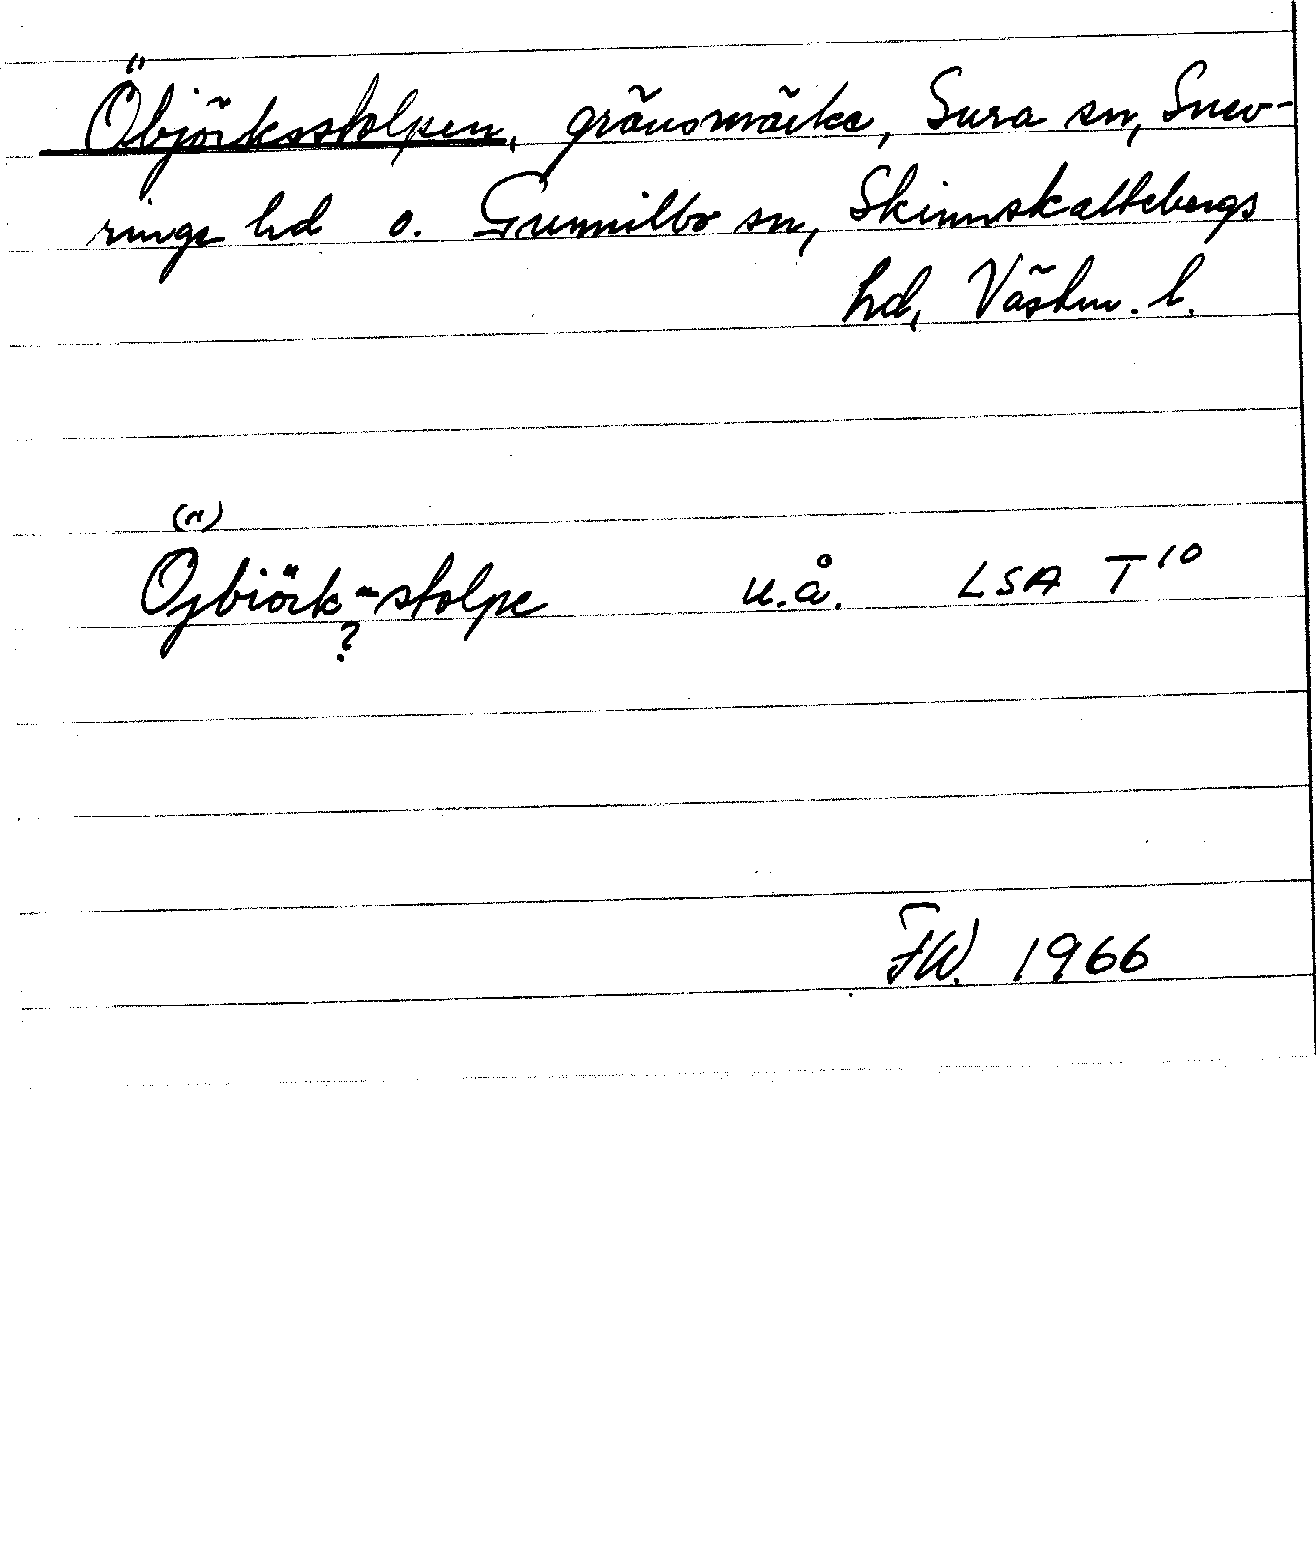 Öbjörksstolpen, gränsmärke, Sura sn, Snev-
ringe hd o. Gunnilbo sn, Skinnskattebergs
hd, Västm. l.
(n)
Ojbiörk-stolpe u.å. LSA T 10
?
FW. 1966